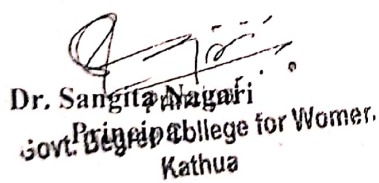 Dr. Sangita Nagari
Principal
Principal
Govt. Degree College for Women,
Kathua